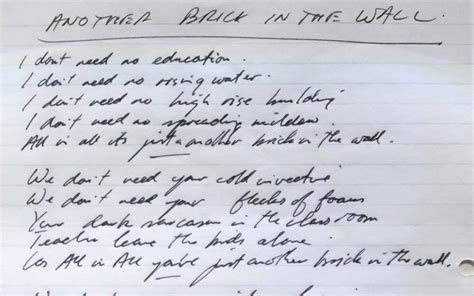 ANOTHER BRICK IN THE WALL.
I dont need no education.
I don't need no rising water.
I don't need no high rise building
I don't need no spreading mildew.
All in all its just another brick in the wall.
We don't need your cold invective
We don't need your flecks of foam
Your dark sarcasm in the classroom
Teacher leave the kids alone.
Cos All in All you're just another brick in the wall.